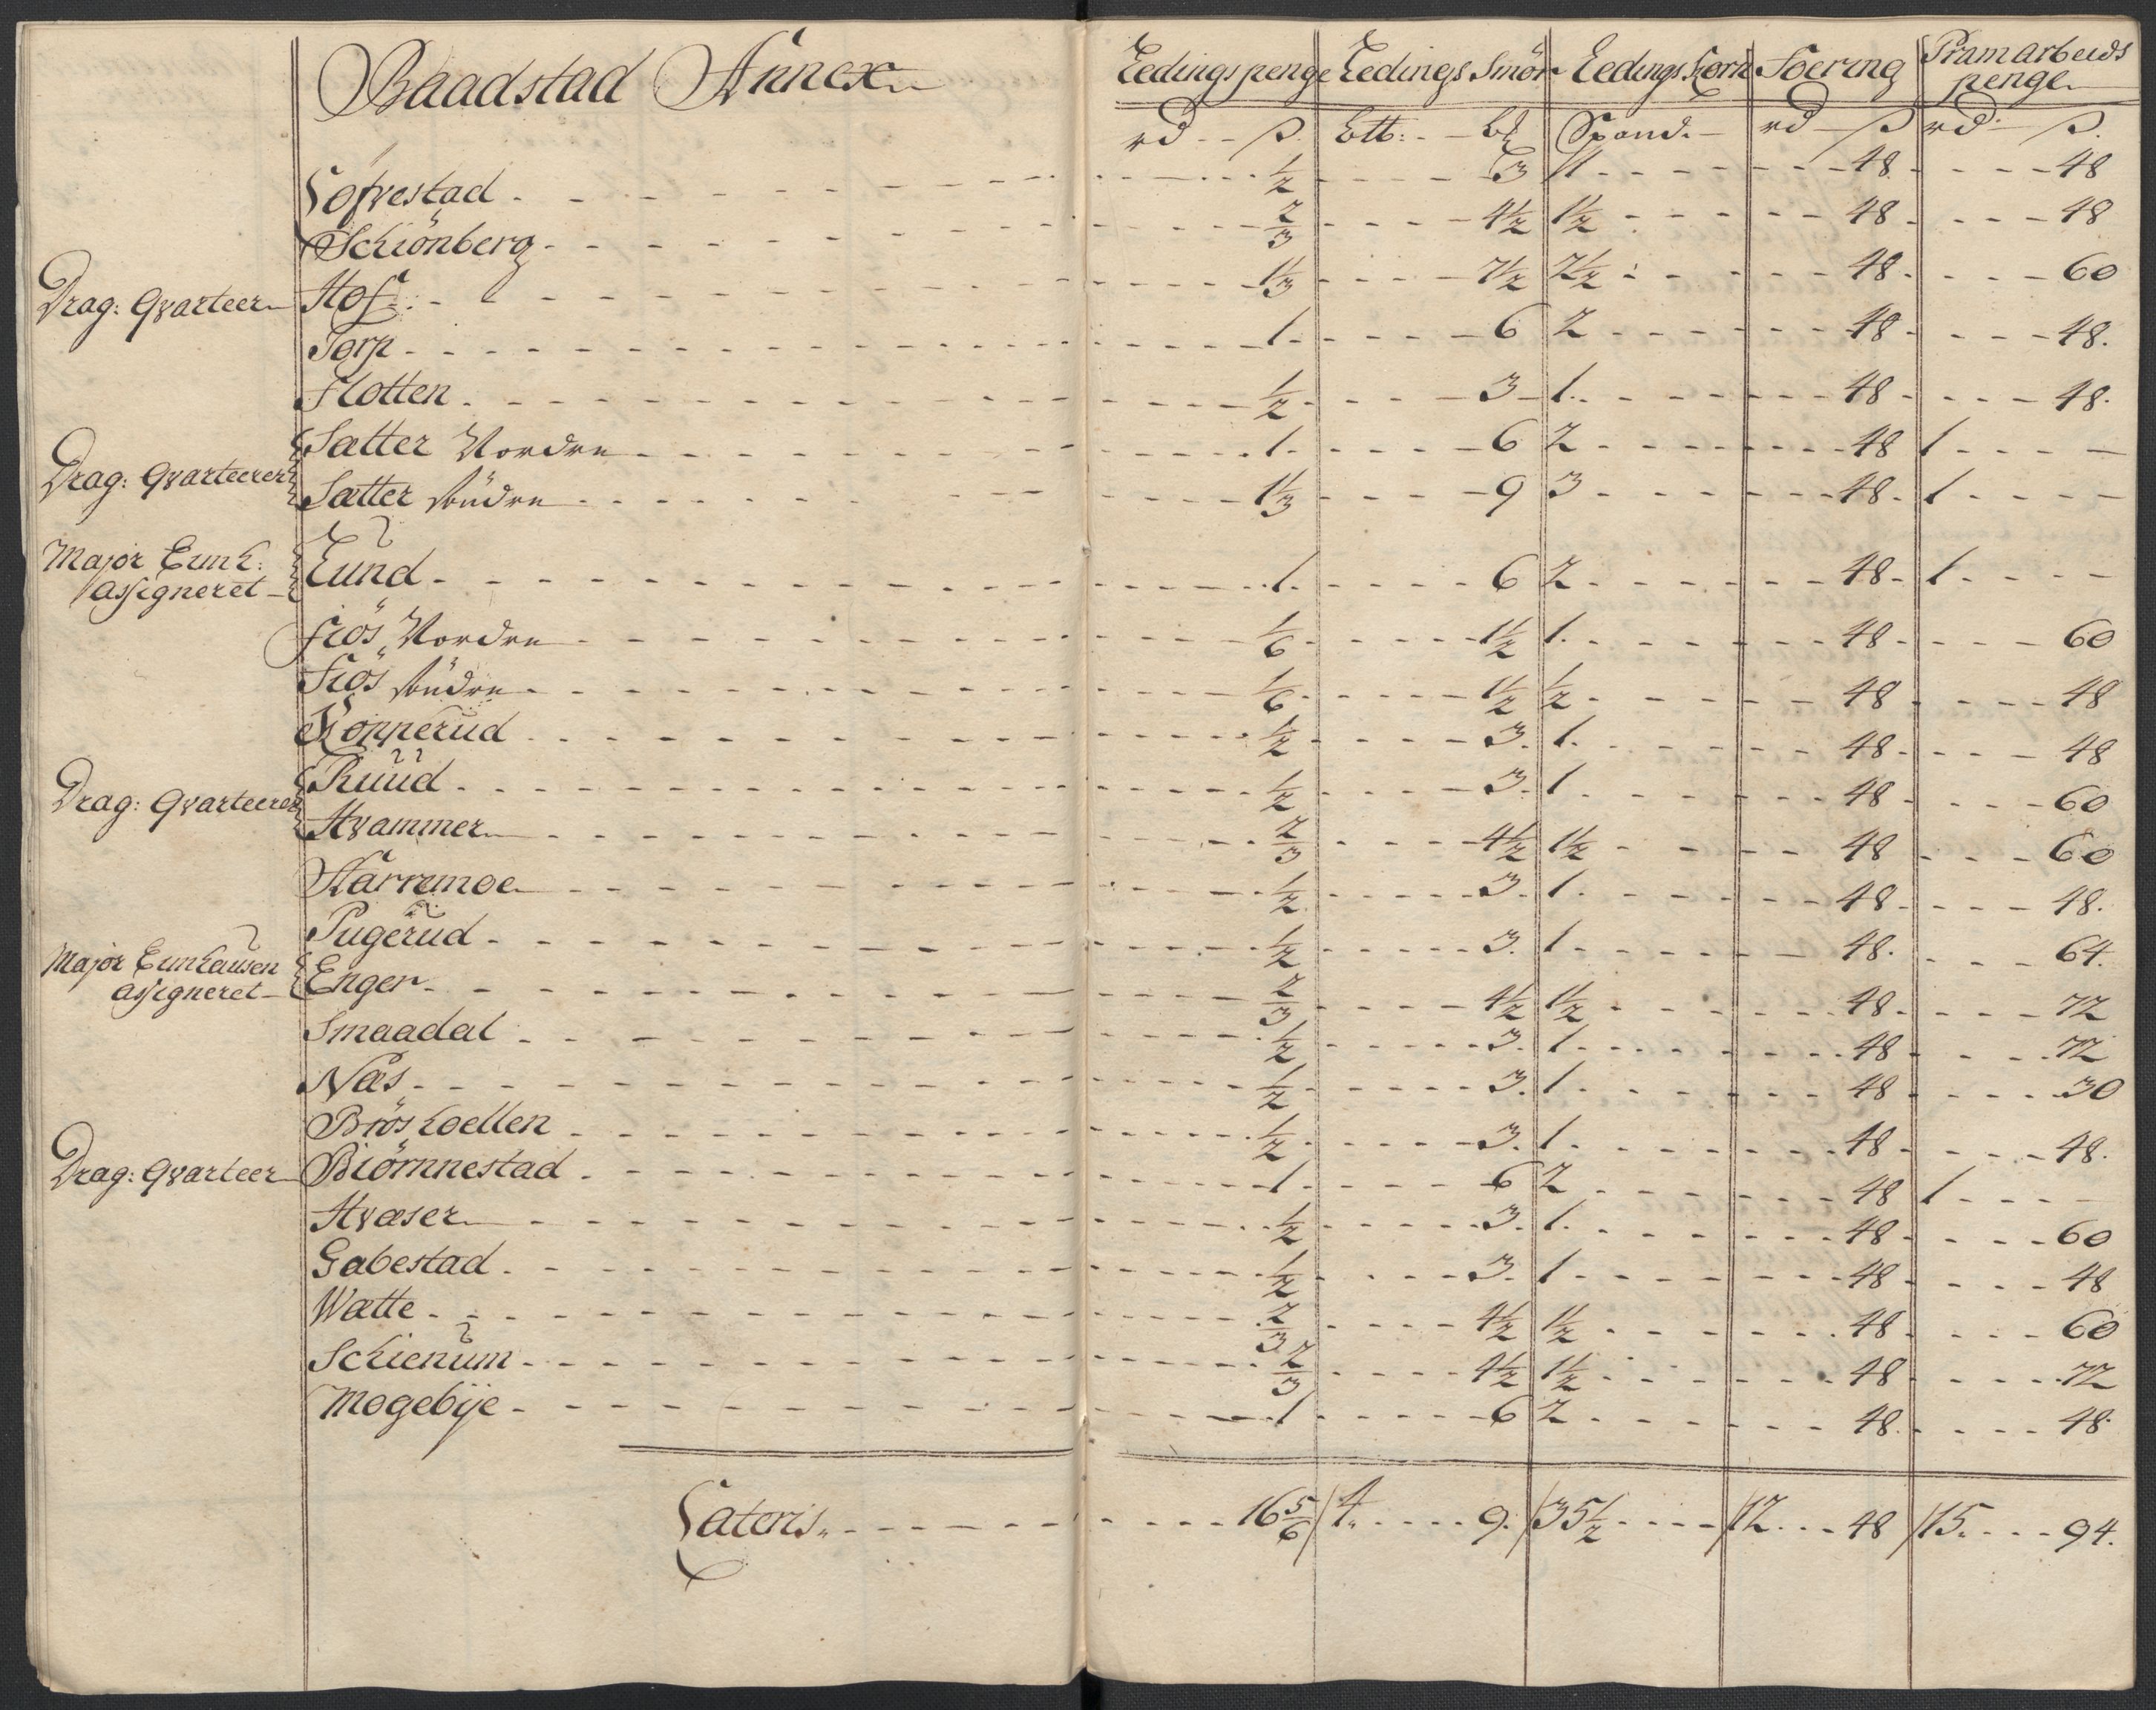 Baadstad Annex
Ledings penge | Ledings Smör | Ledings Korn | Foering | Pramarbeids penge
rd - - ß | Ltt: - - bl | Spand. | rd - ß | rd - ß.
Lofvestad - 1/2 - 3 | 1 - 48 - 48
Schiönberg - 2/3 - 4½ | 1½ - 48 - 48
Drag: Qvarteer Hof: - 1⅓ - 7½ | 2½ - 48 - 60
Torp - 1 - 6 | 2 - 48 - 48.
Flotten - 1/2 - 3 | 1 - 48 - 48.
Drag: Qvarteerer Sætter Nordre - 1 - 6 | 2 - 48 | 1 - -
Sætter Südre - 1⅓ - 9 | 3 - 48 | 1 - -
Major assigneret Lund - 1 - 6 | 2 - 48 | 1 - -
Fiös Nordre - 1/6 - 1½ | 1 - 48 - 60
Fiös Südre - 1/6 - 1½ | ½ - 48 - 48
Kopperud - 1/2 - 3 | 1 - 48 - 48
Drag: Qvarteerer Ruud - 1/2 - 3 | 1 - 48 - 60
Hvammer - 2/3 - 4½ | 1½ - 48 - 60
Harremoe - 1/2 - 3 | 1 - 48 - 48.
Pugerud - 1/2 - 3 | 1 - 48 - 64.
Major assigneret Enger - 2/3 - 4½ | 1½ - 48 - 72
Smaadal - 1/2 - 3 | 1 - 48 - 72
Næs - 1/2 - 3 | 1 - 48 - 30
Brös - 1/2 - 3 | 1 - 48 - 48.
Drag: Qvarteer Biörnnestad - 1 - 6 | 2 - 48 | 1 - -
Hvæser - 1/2 - 3 | 1 - 48 - 60
Gabestad - 1/2 - 3 | 1 - 48 - 48
Watte - 2/3 - 4½ | 1½ - 48 - 60
Schienum - 2/3 - 4½ | 1½ - 48 - 72
Mogebÿe - 1 - 6 | 2 - 48 - 48
Lateris - 16 5/6 | 4 - 9. | 35½ - | 12 - 48 | 15 - 94.